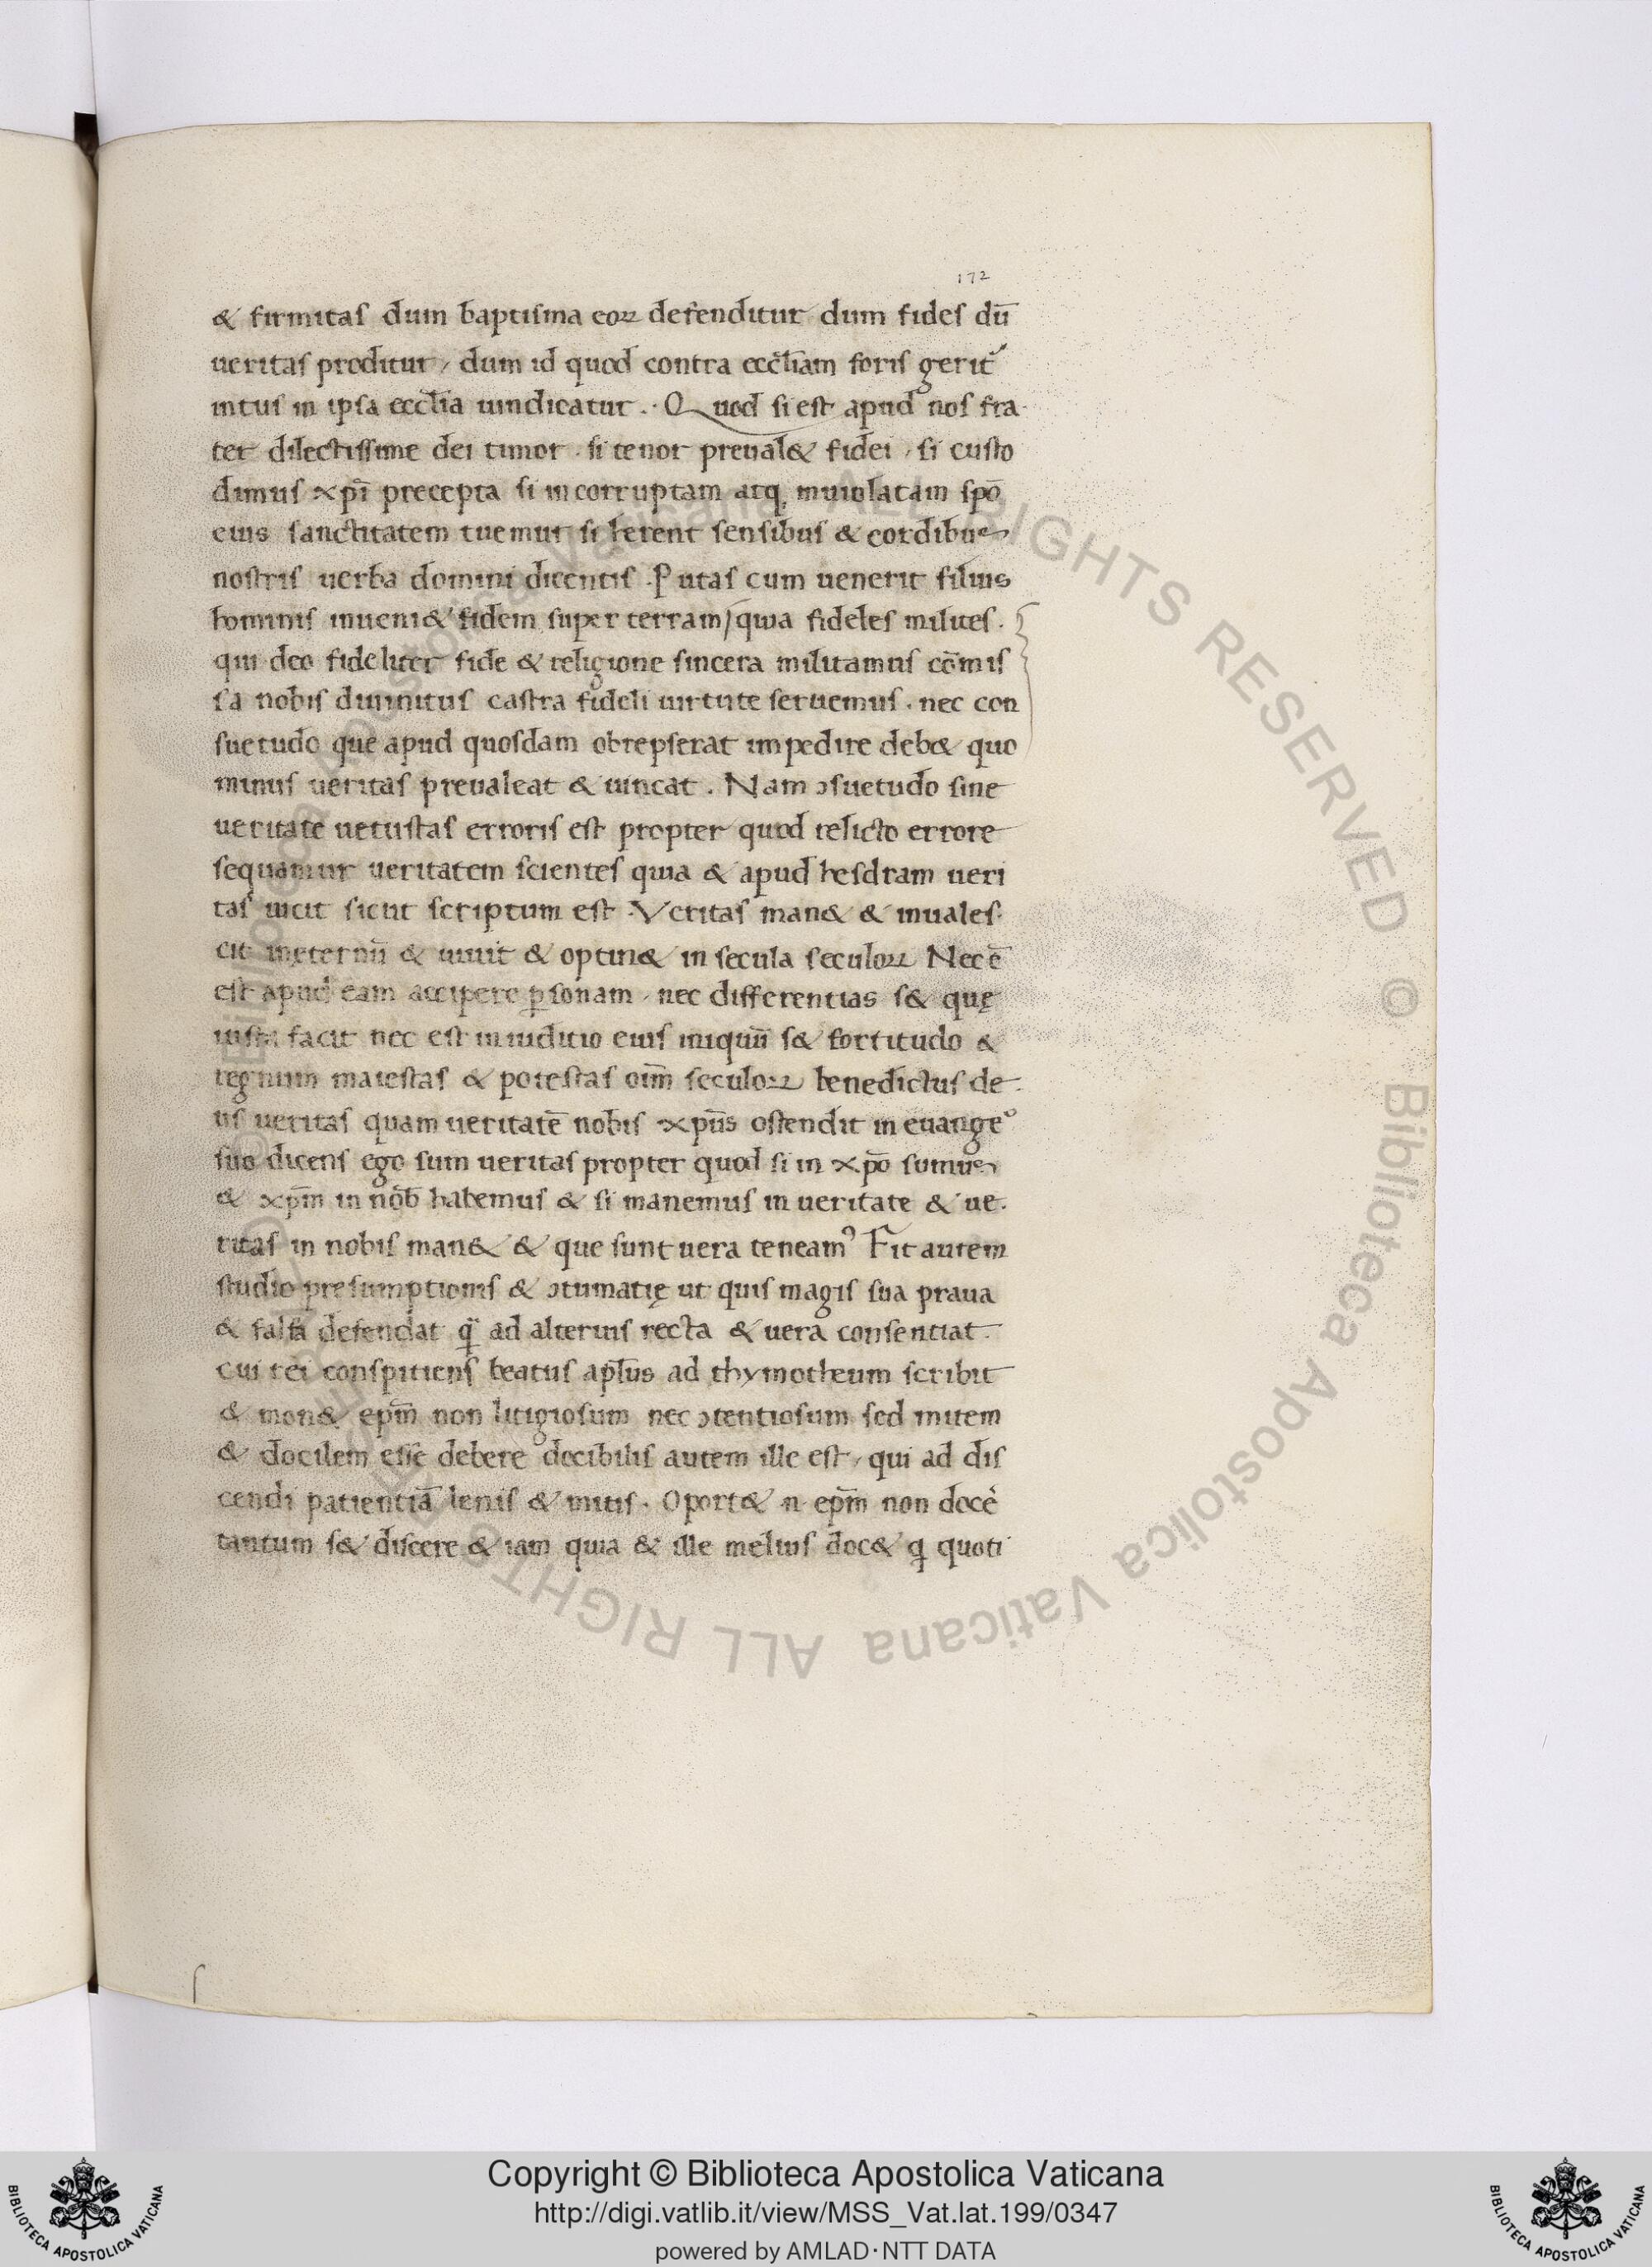 172
& firmitas dum baptisma eoꝝ defenditur dum fides dū
ueritas proditur, dum id quod contra eccl̄iam foris gerit᷑
intus in ipsa eccl̄ia uindicatur. Quod si est apud nos fra
ter dilectissime dei timor. si tenor preual& fidei, si custo
dimus xp̄i precepta si incorruptam atq; inuiolatam spō
eius sanctitatem tuemur si herent sensibus & cordibus
nostris uerba domini dicentis. Putas cum uenerit filius
hominis inueni& fidem super terram/quia fideles milites.
qui deo fideliter fide & religione sincera militamus cōmis
sa nobis diuinitus castra fideli uirtute seruemus. nec con
suetudo que apud quosdam obrepserat impedire deb& quo
minus ueritas preualeat & uincat. Nam ↄsuetudo sine
ueritate uetustas erroris est propter quod relicto errore
sequamur ueritatem scientes quia & apud hesdram ueri
tas uicit sicut scriptum est. Veritas man& & inuales
cit ineternū & uiuit & optin& in secula seculoꝝ Nec ē
est apud eam accipere ꝑsonam, nec differentias s& quę
iusta facit nec est in iuditio eius iniquū s& fortitudo &
regnum maiestas & potestas oīm seculoꝝ benedictus de
us ueritas quam ueritatē nobis xp̄us ostendit in euange°
suo dicens ego sum ueritas propter quod si in xp̄o sumus
& xp̄m in nob̄ habemus & si manemus in ueritate & ue
ritas in nobis man& & que sunt uera teneamꝰ Fit autem
studio presumptionis & ↄtumatię ut quis magis sua praua
& falsa defendat q̄ ad alterius recta & uera consentiat.
cui rei conspitiens beatus apl̄us ad thymotheum scribit
& mon& ep̄m non litigiosum nec ↄtentiosum sed mitem
& docilem esse debere docibilis autem ille est, qui ad dis
cendi patientiā lenis & mitis. Oport& n ep̄m non docē
tantum s& discere & iam quia & ille melius doc& q quoti
Copyright © Biblioteca Apostolica Vaticana
http://digi.vatlib.it/view/MSS_Vat.lat.199/0347
powered by AMLAD·NTT DATA
BIBLIOTECA APOSTOLICA VATICANA
BIBLIOTECA APOSTOLICA VATICANA